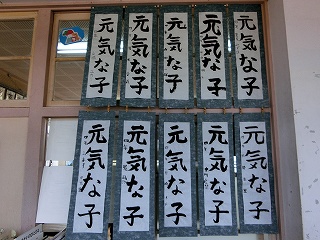 元気な子
元気な子
元気な子
元気な子
元気な子
元気な子
元気な子
元気な子
元気な子
元気な子